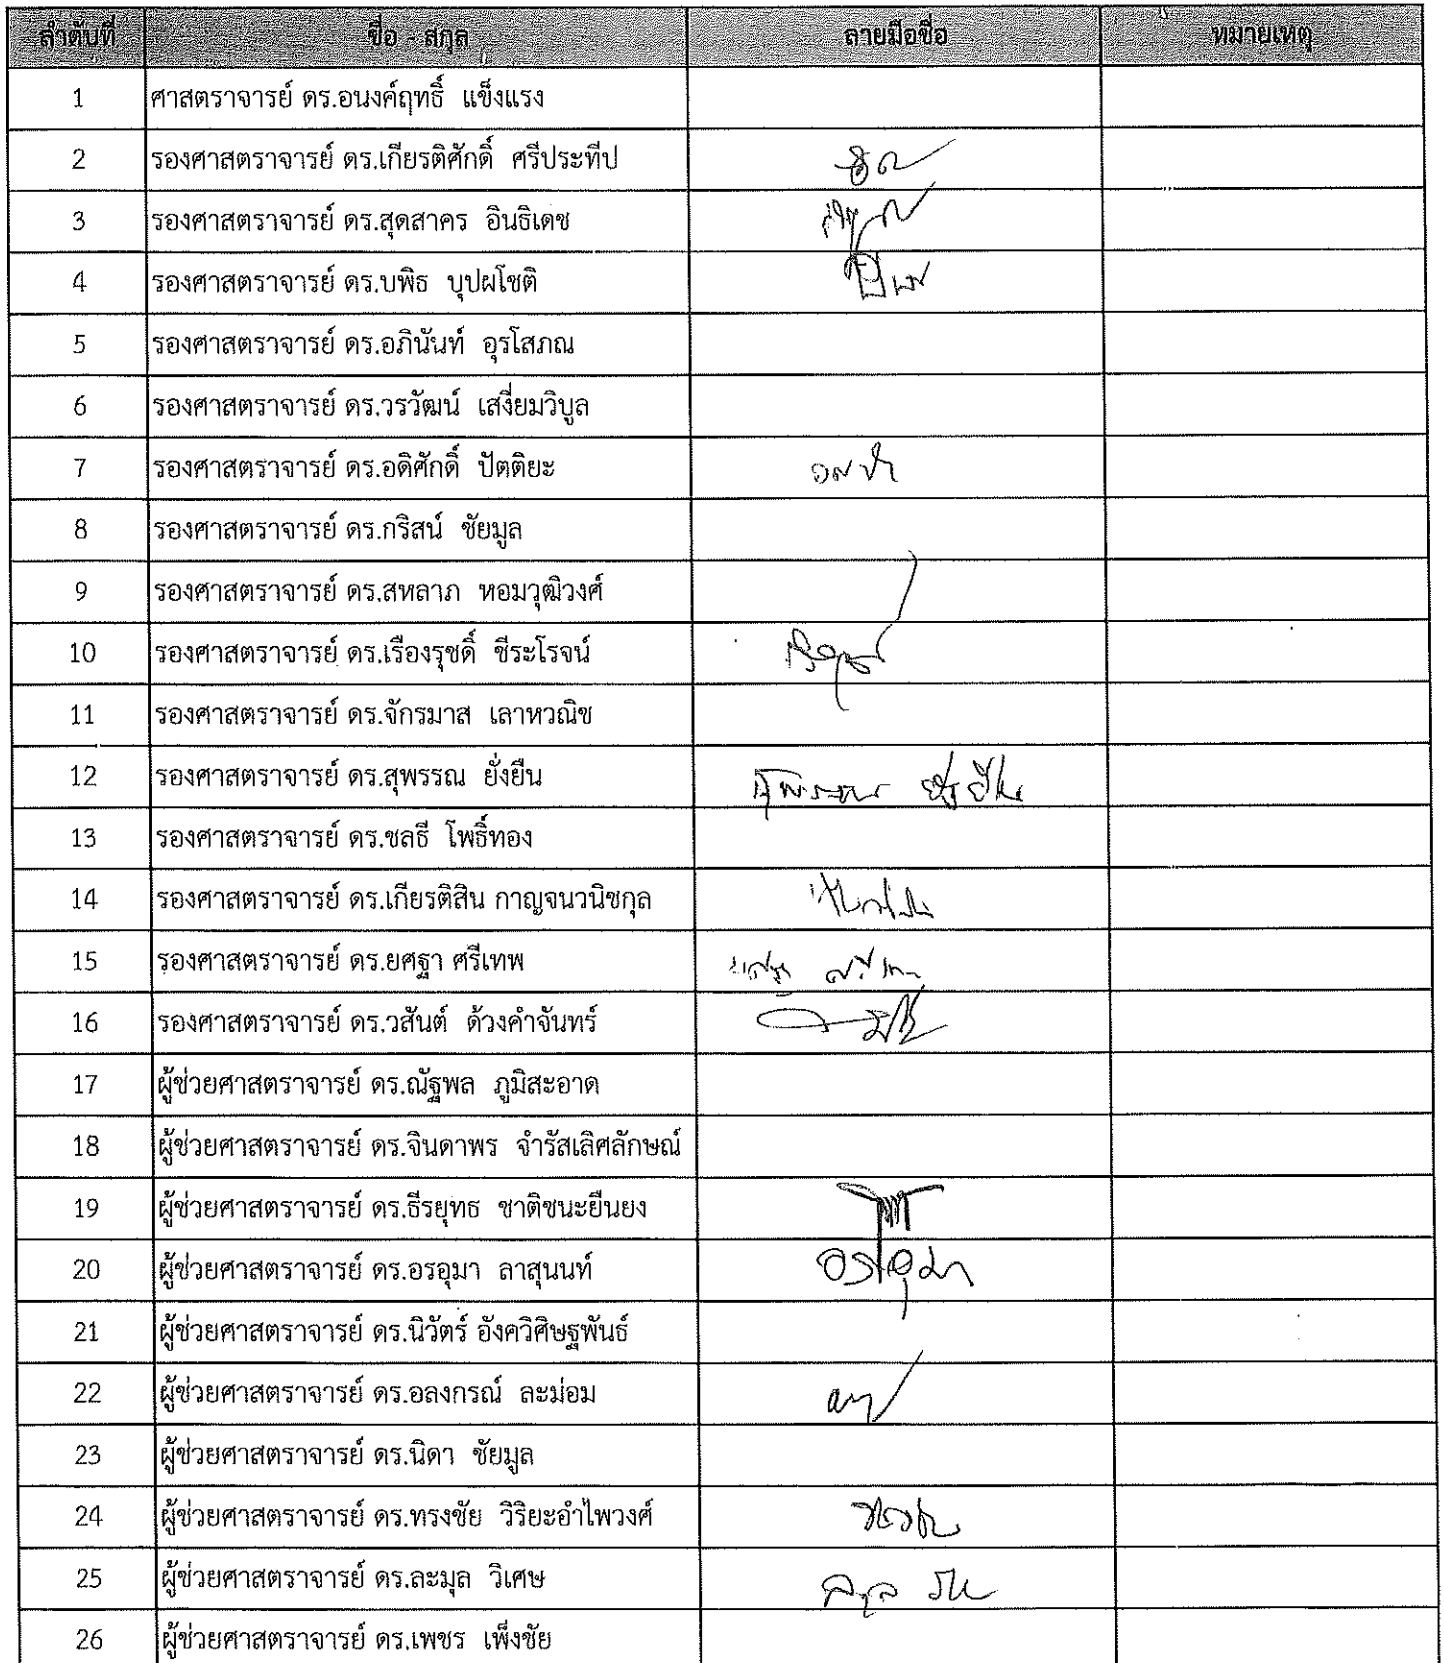 ลำดับที่ ชื่อ - สกุล ลายมือชื่อ หมายเหตุ
1 ศาสตราจารย์ ดร.อนงค์ฤทธิ์ แข็งแรง
2 รองศาสตราจารย์ ดร.เกียรติศักดิ์ ศรีประทีป
3 รองศาสตราจารย์ ดร.สุดสาคร อินธิเดช
4 รองศาสตราจารย์ ดร.บพิธ บุปผโชติ
5 รองศาสตราจารย์ ดร.อภินันท์ อุรโสภณ
6 รองศาสตราจารย์ ดร.วรวัฒน์ เสงี่ยมวิบูล
7 รองศาสตราจารย์ ดร.อดิศักดิ์ ปัตติยะ
8 รองศาสตราจารย์ ดร.กริสน์ ชัยมูล
9 รองศาสตราจารย์ ดร.สหลาภ หอมวุฒิวงศ์
10 รองศาสตราจารย์ ดร.เรืองรุชดิ์ ชีระโรจน์
11 รองศาสตราจารย์ ดร.จักรมาส เลาหวณิช
12 รองศาสตราจารย์ ดร.สุพรรณ ยั่งยืน สุพรรณ ยั่งยืน
13 รองศาสตราจารย์ ดร.ชลธี โพธิ์ทอง
14 รองศาสตราจารย์ ดร.เกียรติสิน กาญจนวนิชกุล
15 รองศาสตราจารย์ ดร.ยศฐา ศรีเทพ
16 รองศาสตราจารย์ ดร.วสันต์ ด้วงคำจันทร์
17 ผู้ช่วยศาสตราจารย์ ดร.ณัฐพล ภูมิสะอาด
18 ผู้ช่วยศาสตราจารย์ ดร.จินดาพร จำรัสเลิศลักษณ์
19 ผู้ช่วยศาสตราจารย์ ดร.ธีรยุทธ ชาติชนะยืนยง
20 ผู้ช่วยศาสตราจารย์ ดร.อรอุมา ลาสุนนท์ อรอุมา
21 ผู้ช่วยศาสตราจารย์ ดร.นิวัตร์ อังควิศิษฐพันธ์
22 ผู้ช่วยศาสตราจารย์ ดร.อลงกรณ์ ละม่อม
23 ผู้ช่วยศาสตราจารย์ ดร.นิดา ชัยมูล
24 ผู้ช่วยศาสตราจารย์ ดร.ทรงชัย วิริยะอำไพวงศ์
25 ผู้ช่วยศาสตราจารย์ ดร.ละมุล วิเศษ
26 ผู้ช่วยศาสตราจารย์ ดร.เพชร เพ็งชัย